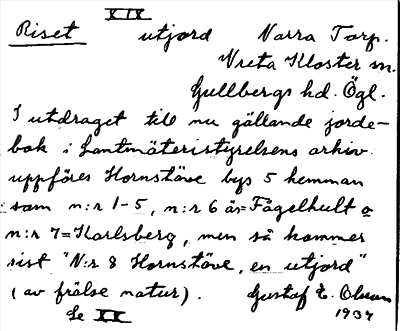 XIX
Riset utjord Narra Torp.
Vreta Kloster sn.
Gullbergs hd. Ögl.
I utdraget till nu gällande jorde-
bok i Lantmäteristyrelsens arkiv
uppföres Hornstöve bys 5 hemman
som n:r 1-5, n:r 6 är= Fågelhult o
n:r 7= Karlsberg, men så kommer
sist "N:r 8 Hornstöve, en utjord"
(av frälse natur). Gustaf E. Olsson
Se XX 1934